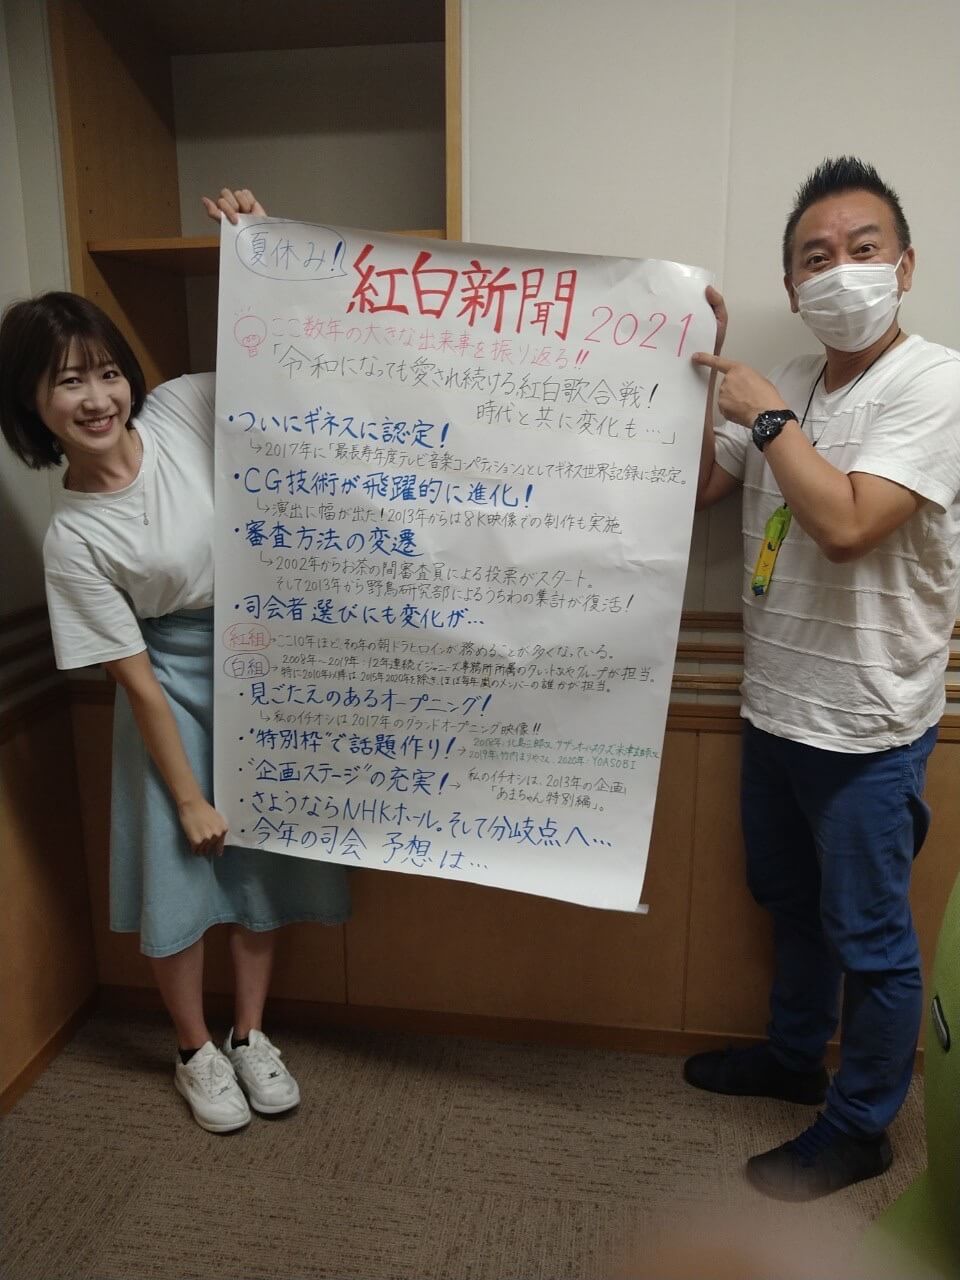 夏休み!
紅白新聞 2021
ここ数年の大きな出来事を振り返る!!
「令和になっても愛され続ける紅白歌合戦!
時代と共に変化も…」
・ついにギネスに認定!
↳2017年に「最長寿年度テレビ音楽コンペティション」としてギネス世界記録に認定。
・CG技術が飛躍的に進化!
↳演出に幅が出た!2013年からは8K映像での制作も実施
・審査方法の変遷
↳2002年からお茶の間審査員による投票がスタート。
そして2013年から野鳥研究部によるうちわの集計が復活!
・司会者選びにも変化が…
紅組→ここ10年ほど、その年の朝ドラヒロインが務めることが多くなっている。
白組→2008年〜2019年:12年連続でジャニーズ事務所所属のタレントやグループが担当。
特に2010年以降は2015年2020年を除き、ほぼ毎年嵐のメンバーの誰かが担当。
・見ごたえのあるオープニング!
↳私のイチオシは2017年のグランドオープニング映像!!
・"特別枠"で話題作り!→2008年:北島三郎さん、サザンオールスターズ、米津玄師さん
2019年:竹内まりやさん、2020年:YOASOBI
・"企画ステージ"の充実!→私のイチオシは、2013年の企画
「あまちゃん特別編」。
・さようならNHKホール。そして分岐点へ…
・今年の司会 予想は…